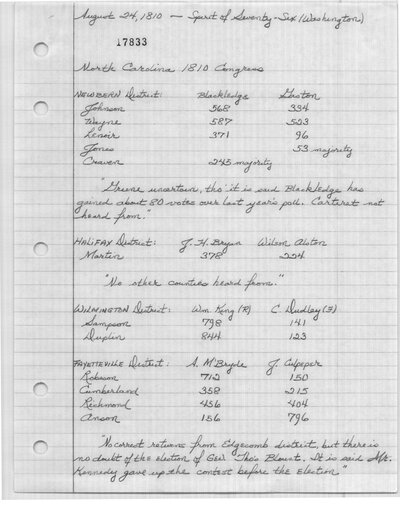 August 24, 1810 — Spirit of Seventy-Six (Washington)
17833
North Carolina 1810 Congress
NEWBERN District: Blackledge Gaston
Johnson 568 334
Wayne 587 523
Lenoir 371 96
Jones 53 majority
Craven 245 majority
"Greene uncertain, tho' it is said Blackledge has
gained about 80 votes over last year's poll. Carteret not
heard from."
HALIFAX District: J. H. Bryan Wilson Alston
Martin 378 224
"No other counties heard from."
WILMINGTON District: Wm. King (R) C. Dudley (F)
Sampson 798 141
Duplin 844 123
FAYETTEVILLE District: A. McBryde J. Culpeper
Robson 712 150
Cumberland 358 215
Richmond 456 404
Anson 156 796
"No correct returns from Edgecomb district, but there is
no doubt of the election of Gen Tho's Blount. It is said Mr.
Kennedy gave up the contest before the election"